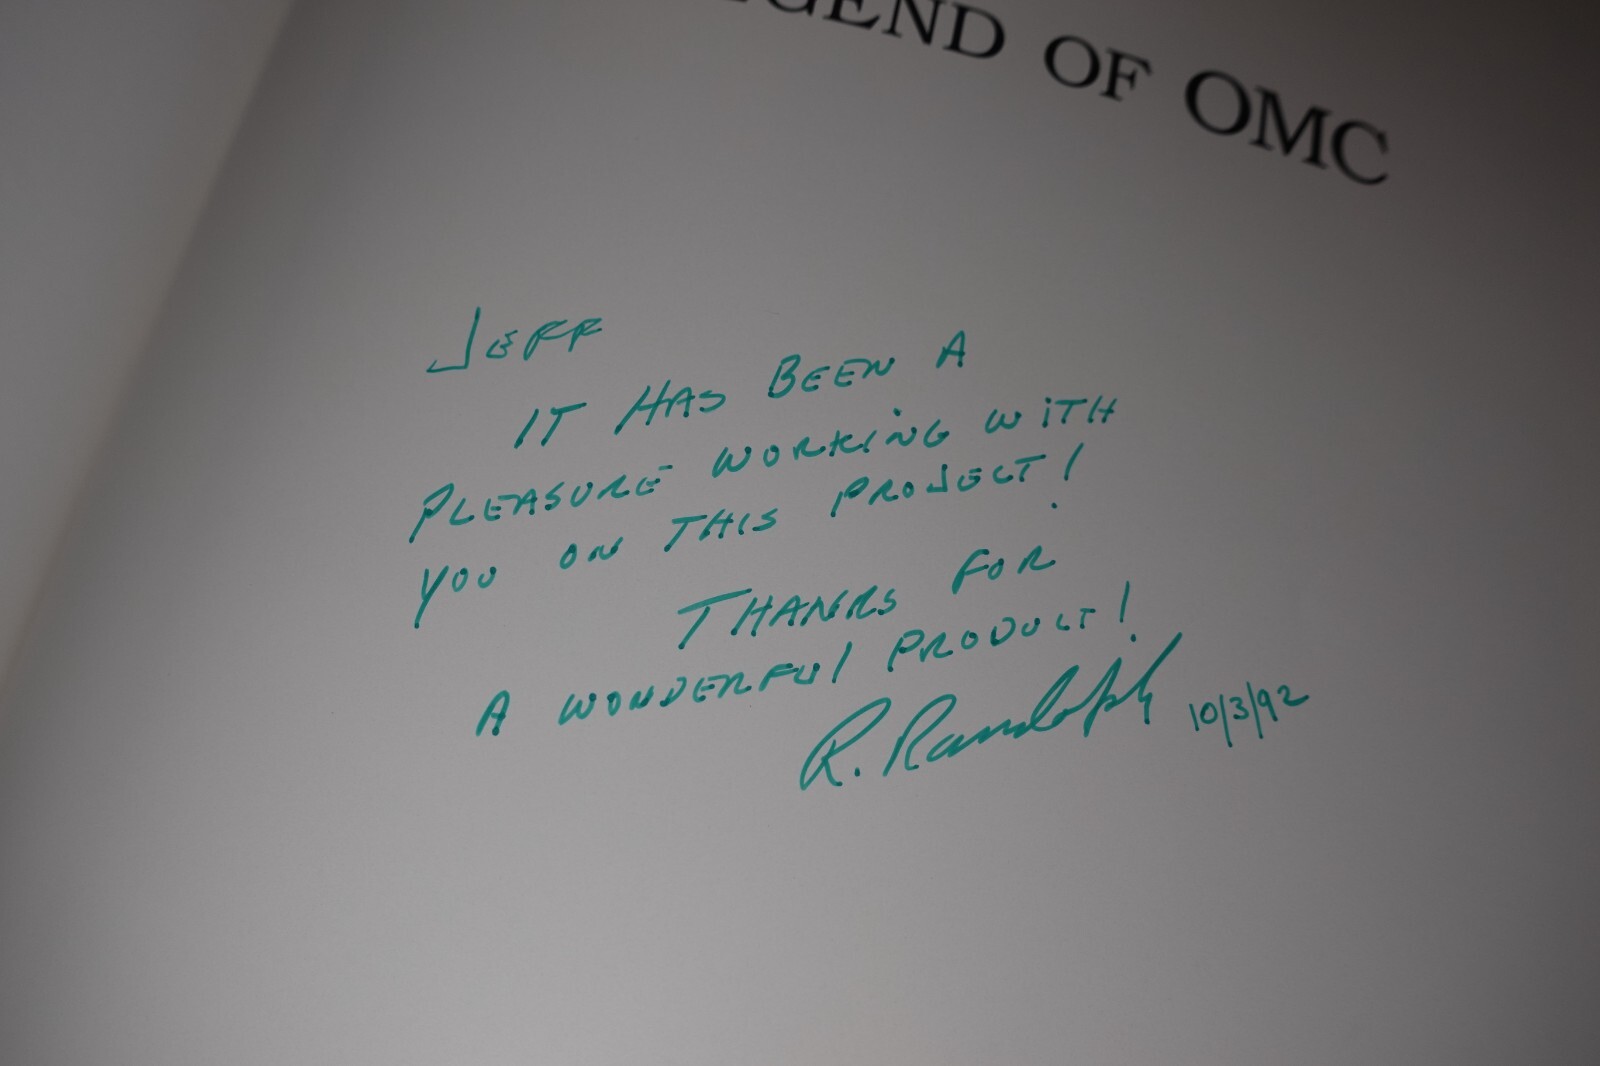 LEGEND OF OMC
JEFF
IT HAS BEEN A
PLEASURE WORKING WITH
YOU ON THIS PROJECT!
THANKS FOR
A WONDERFUL PRODUCT!
R. Randolph 10/3/92